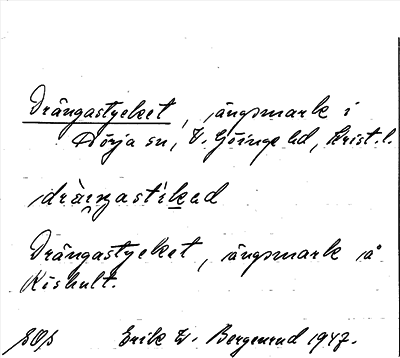 Drängastycket, ängsmark i
Dörja sn, V. Göinge hd, Krist. l.
dräŋgastikad
Drängastycket, ängsmark å
Kishult.
Erik W. Bergenrud 1947.